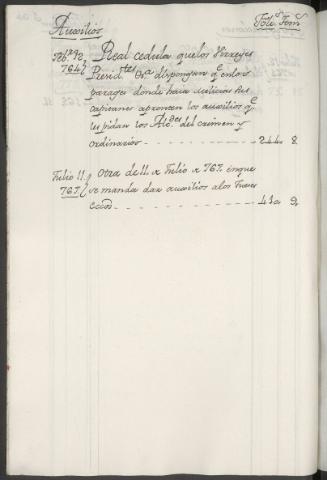 Auxilios Fols. Toms.
Feb.º 12 Real cedula que los Virreyes
764 Presid.tes &.a dispongan q.e en los
parages donde haia milicias sus
capitanes apronten los auxilios q.e
les pidan los Alc.des del crimen y
ordinarios 244 8
Julio 11 Otra de 11 de Julio de 765 en que
765 se manda dar auxilios a los Jueces
eccos 410 9